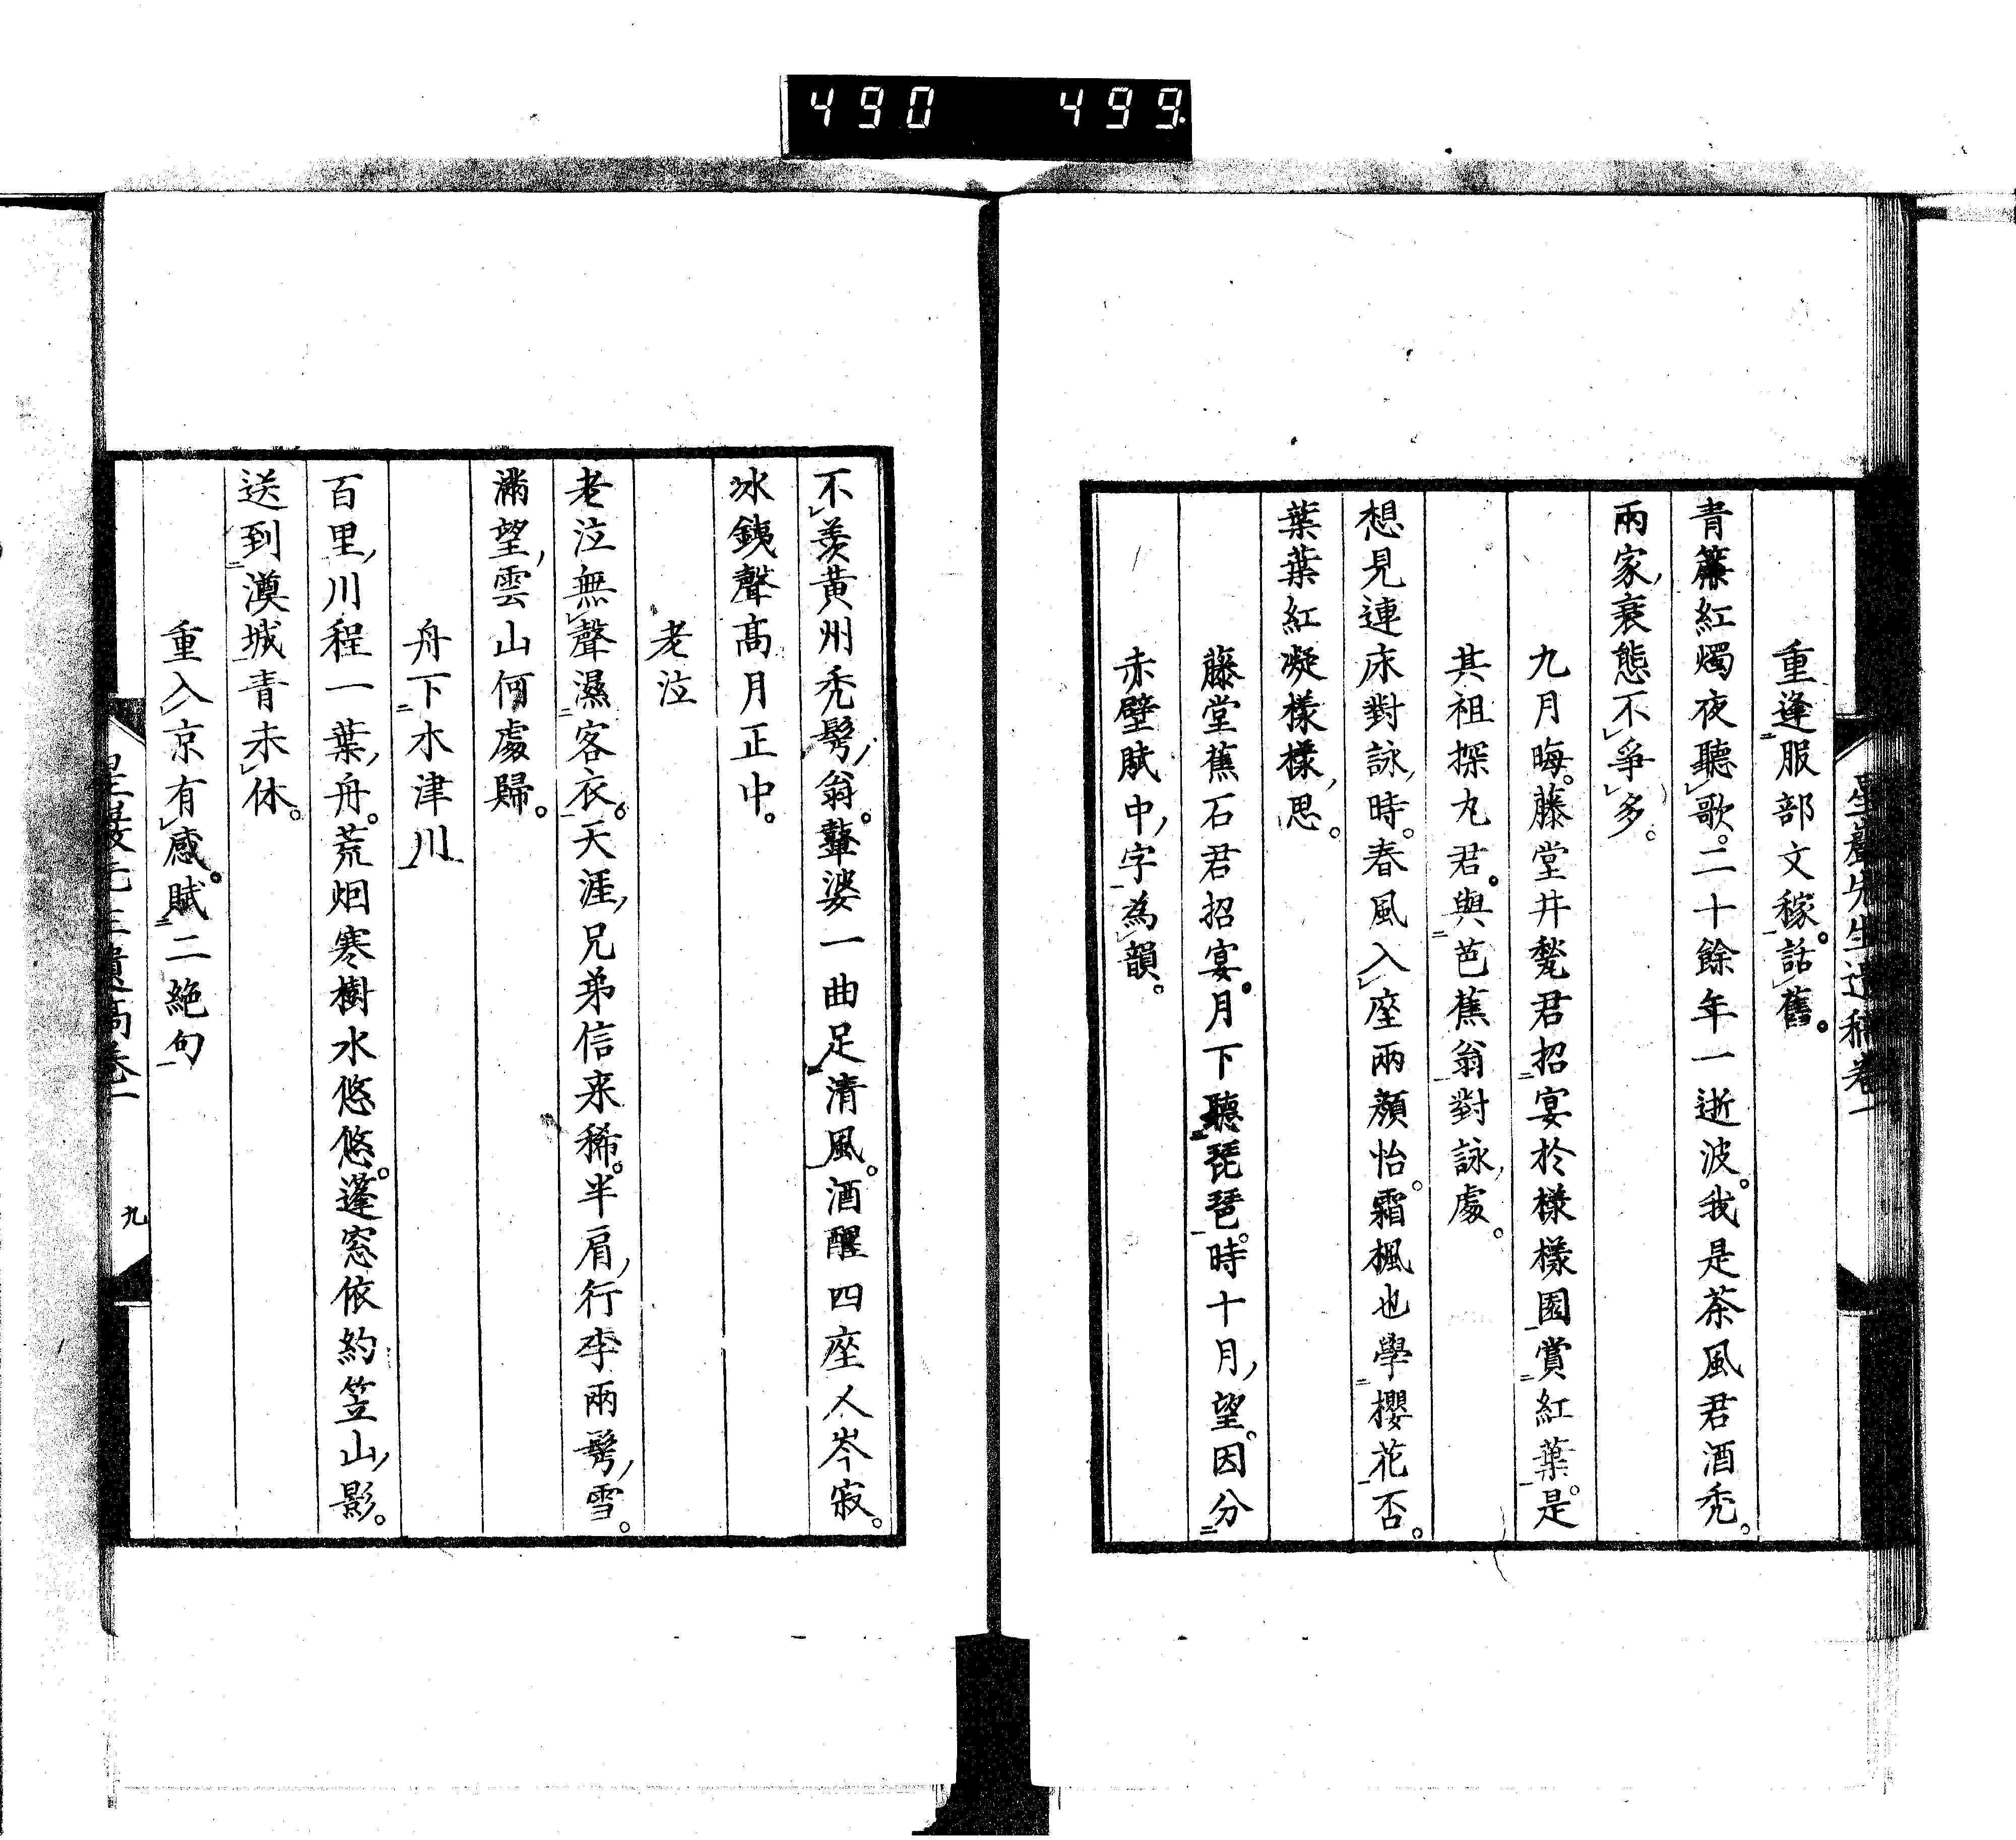 490 499
星巖先生遺稿卷一
重逢服部文稼。話舊。
青簾紅燭夜聽歌。二十餘年一逝波。我是茶風君酒禿。
兩家衰態不爭多。
九月晦。藤堂井甃君招宴於樣樣園賞紅葉。是
其祖探丸君。與芭蕉翁對詠處。
想見連床對詠時。春風入座兩顏怡。霜楓也學櫻花否。
葉葉紅凝樣樣思。
藤堂蕉石君招宴。月下聽琵琶。時十月望。因分
赤壁賦中字為韻。
不羨黃州禿鬢翁。鼙婆一曲足清風。酒醒四座人岑寂。
冰銕聲高月正中。
老泣
老泣無聲濕客衣。天涯兄弟信来稀。半肩行李兩鬢雪。
滿望雲山何處歸。
舟下木津川
百里川程一葉舟。荒烟寒樹水悠悠。篷窓依約笠山影。
送到澱城青未休。
重入京有感。賦二絶句
星巖先生遺稿卷一
九